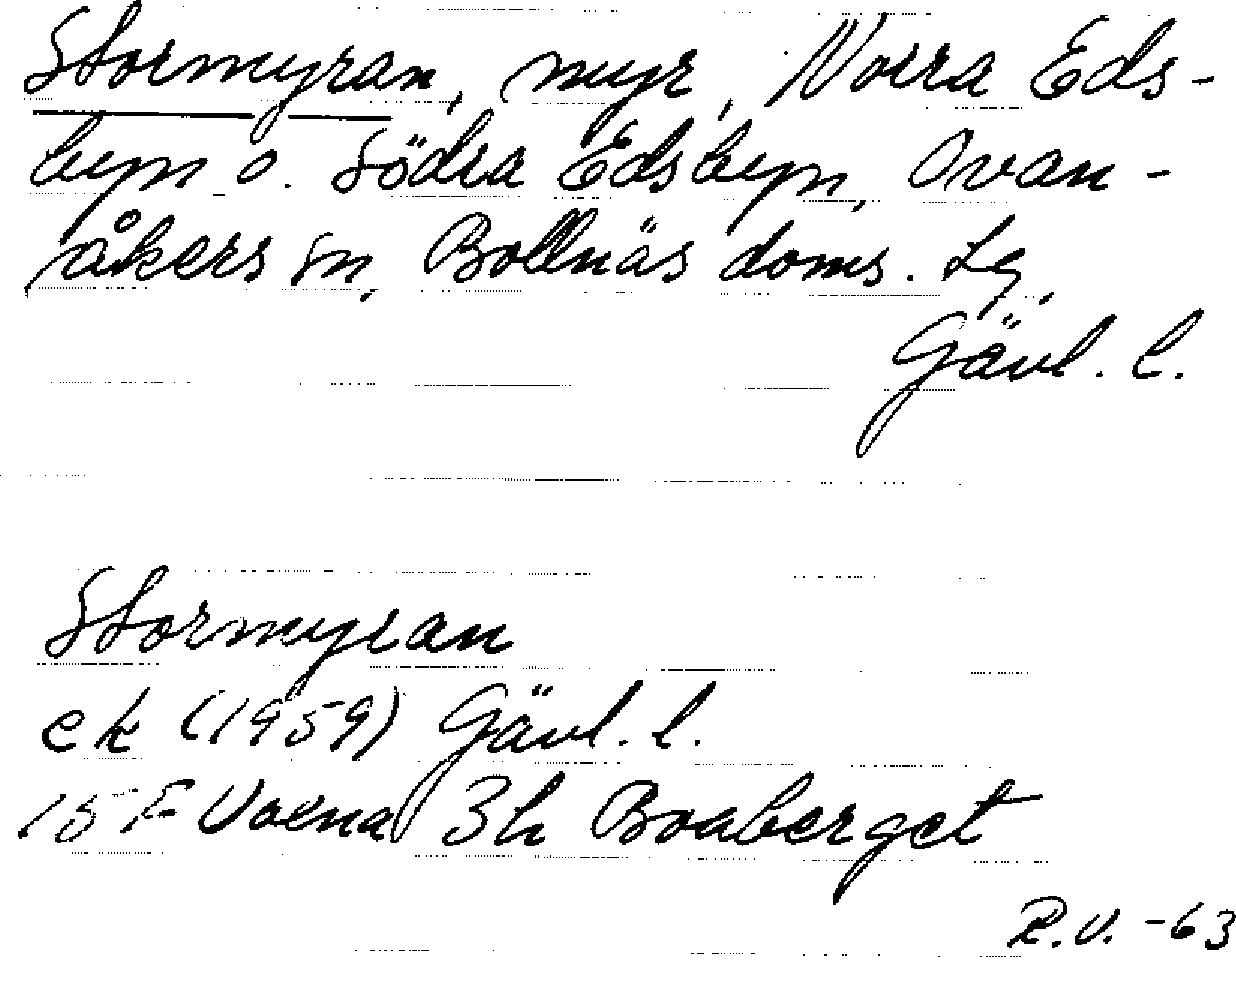 Stormyran, myr, Norra Eds-
byn o. Södra Edsbyn, Ovan-
åkers sn, Bollnäs doms. Lg,
Gävl. l.
Stormyran
ek (1959) Gävl. l.
15 F Voxna 3h Boaberget
R.V. -63